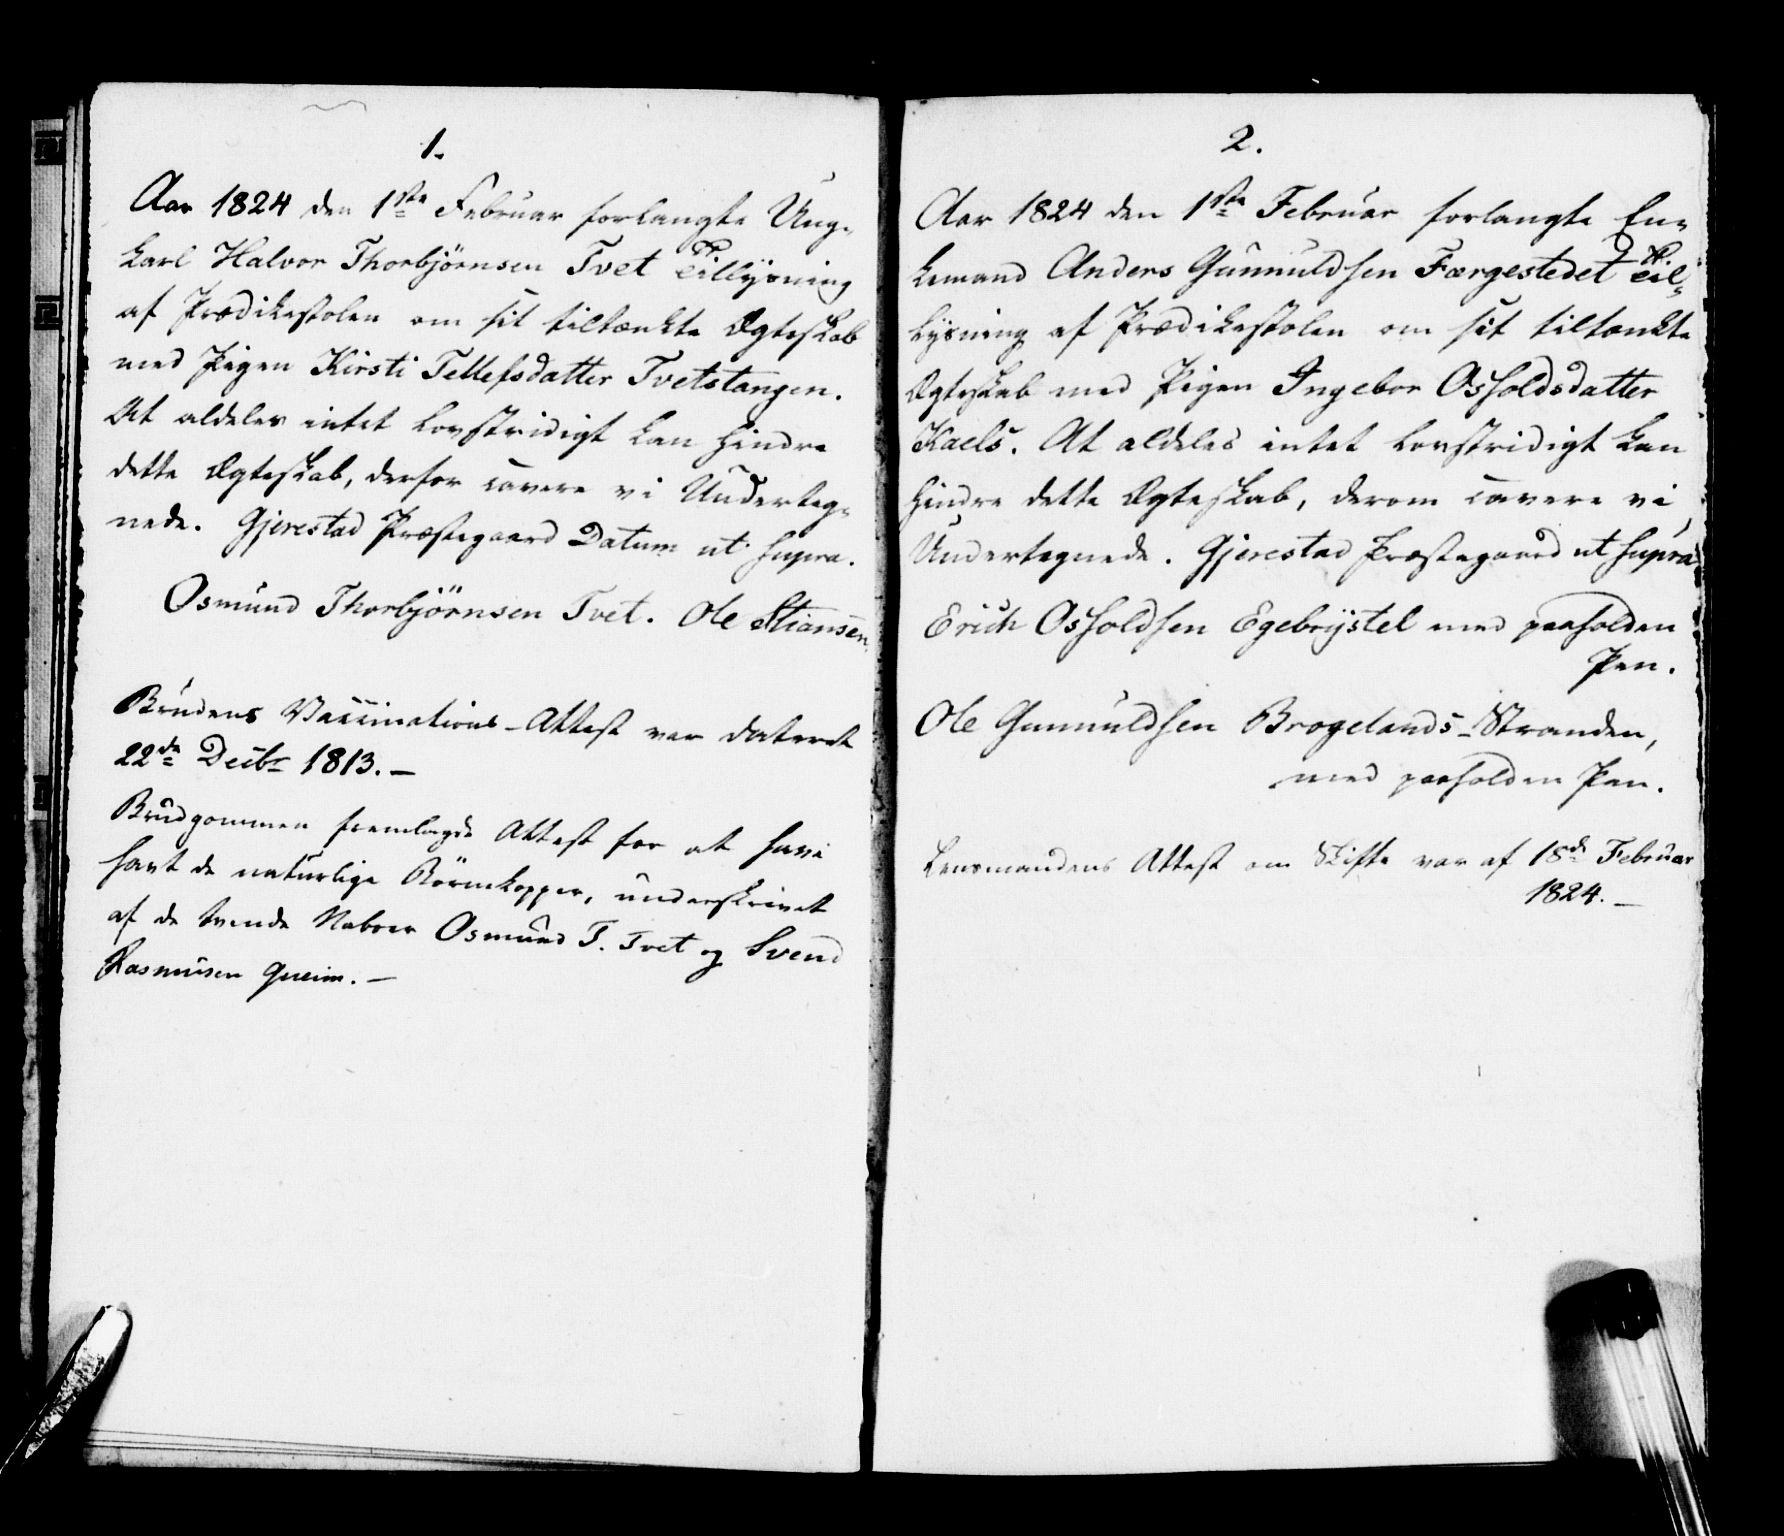 1.
Aar 1824 den 1ste Februar forlangte Ung-
karl Halvor Thorbjörnsen Tvet Tillysning
af Prædikestolen om sit tiltænkte Ægteskab
med Pigen Kirsti Tellefsdatter Tvetstangen.
At aldeles intet lovstridigt kan hindre
dette Ægteskab, derfor cavere vi Underteg-
nede. Gjerestad Præstegaard Datum ut supra.
Osmund Thorbjörnsen Tvet. Ole Stiansen.
Brudens Vaccinations-Attest var dateret
22de Decbr 1813. –
Brudgommen fremlagde Attest for at have
havt de naturlige Börnekopper, underskrevet
af de tvende Naboer Osmund T. Tvet og Svend
Rasmusen Qveim. –
2.
Aar 1824 den 1ste Februar forlangte En-
kemand Anders Gunnuldsen Færgestedet Til-
lysning af Prædikestolen om sit tiltænkte
Ægteskab med Pigen Ingebor Osholdsdatter
Kaels. At aldeles intet lovstridigt kan
hindre dette Ægteskab, derom cavere vi
Undertegnede. Gjerestad Præstegaard ut supra
Erich Osholdsen Egebrystel med paaholden
Pen.
Ole Gunnuldsen Brogelands-Stranden,
med paaholden Pen.
Lensmandens Attest om Skifte var af 18de Februar
1824. –